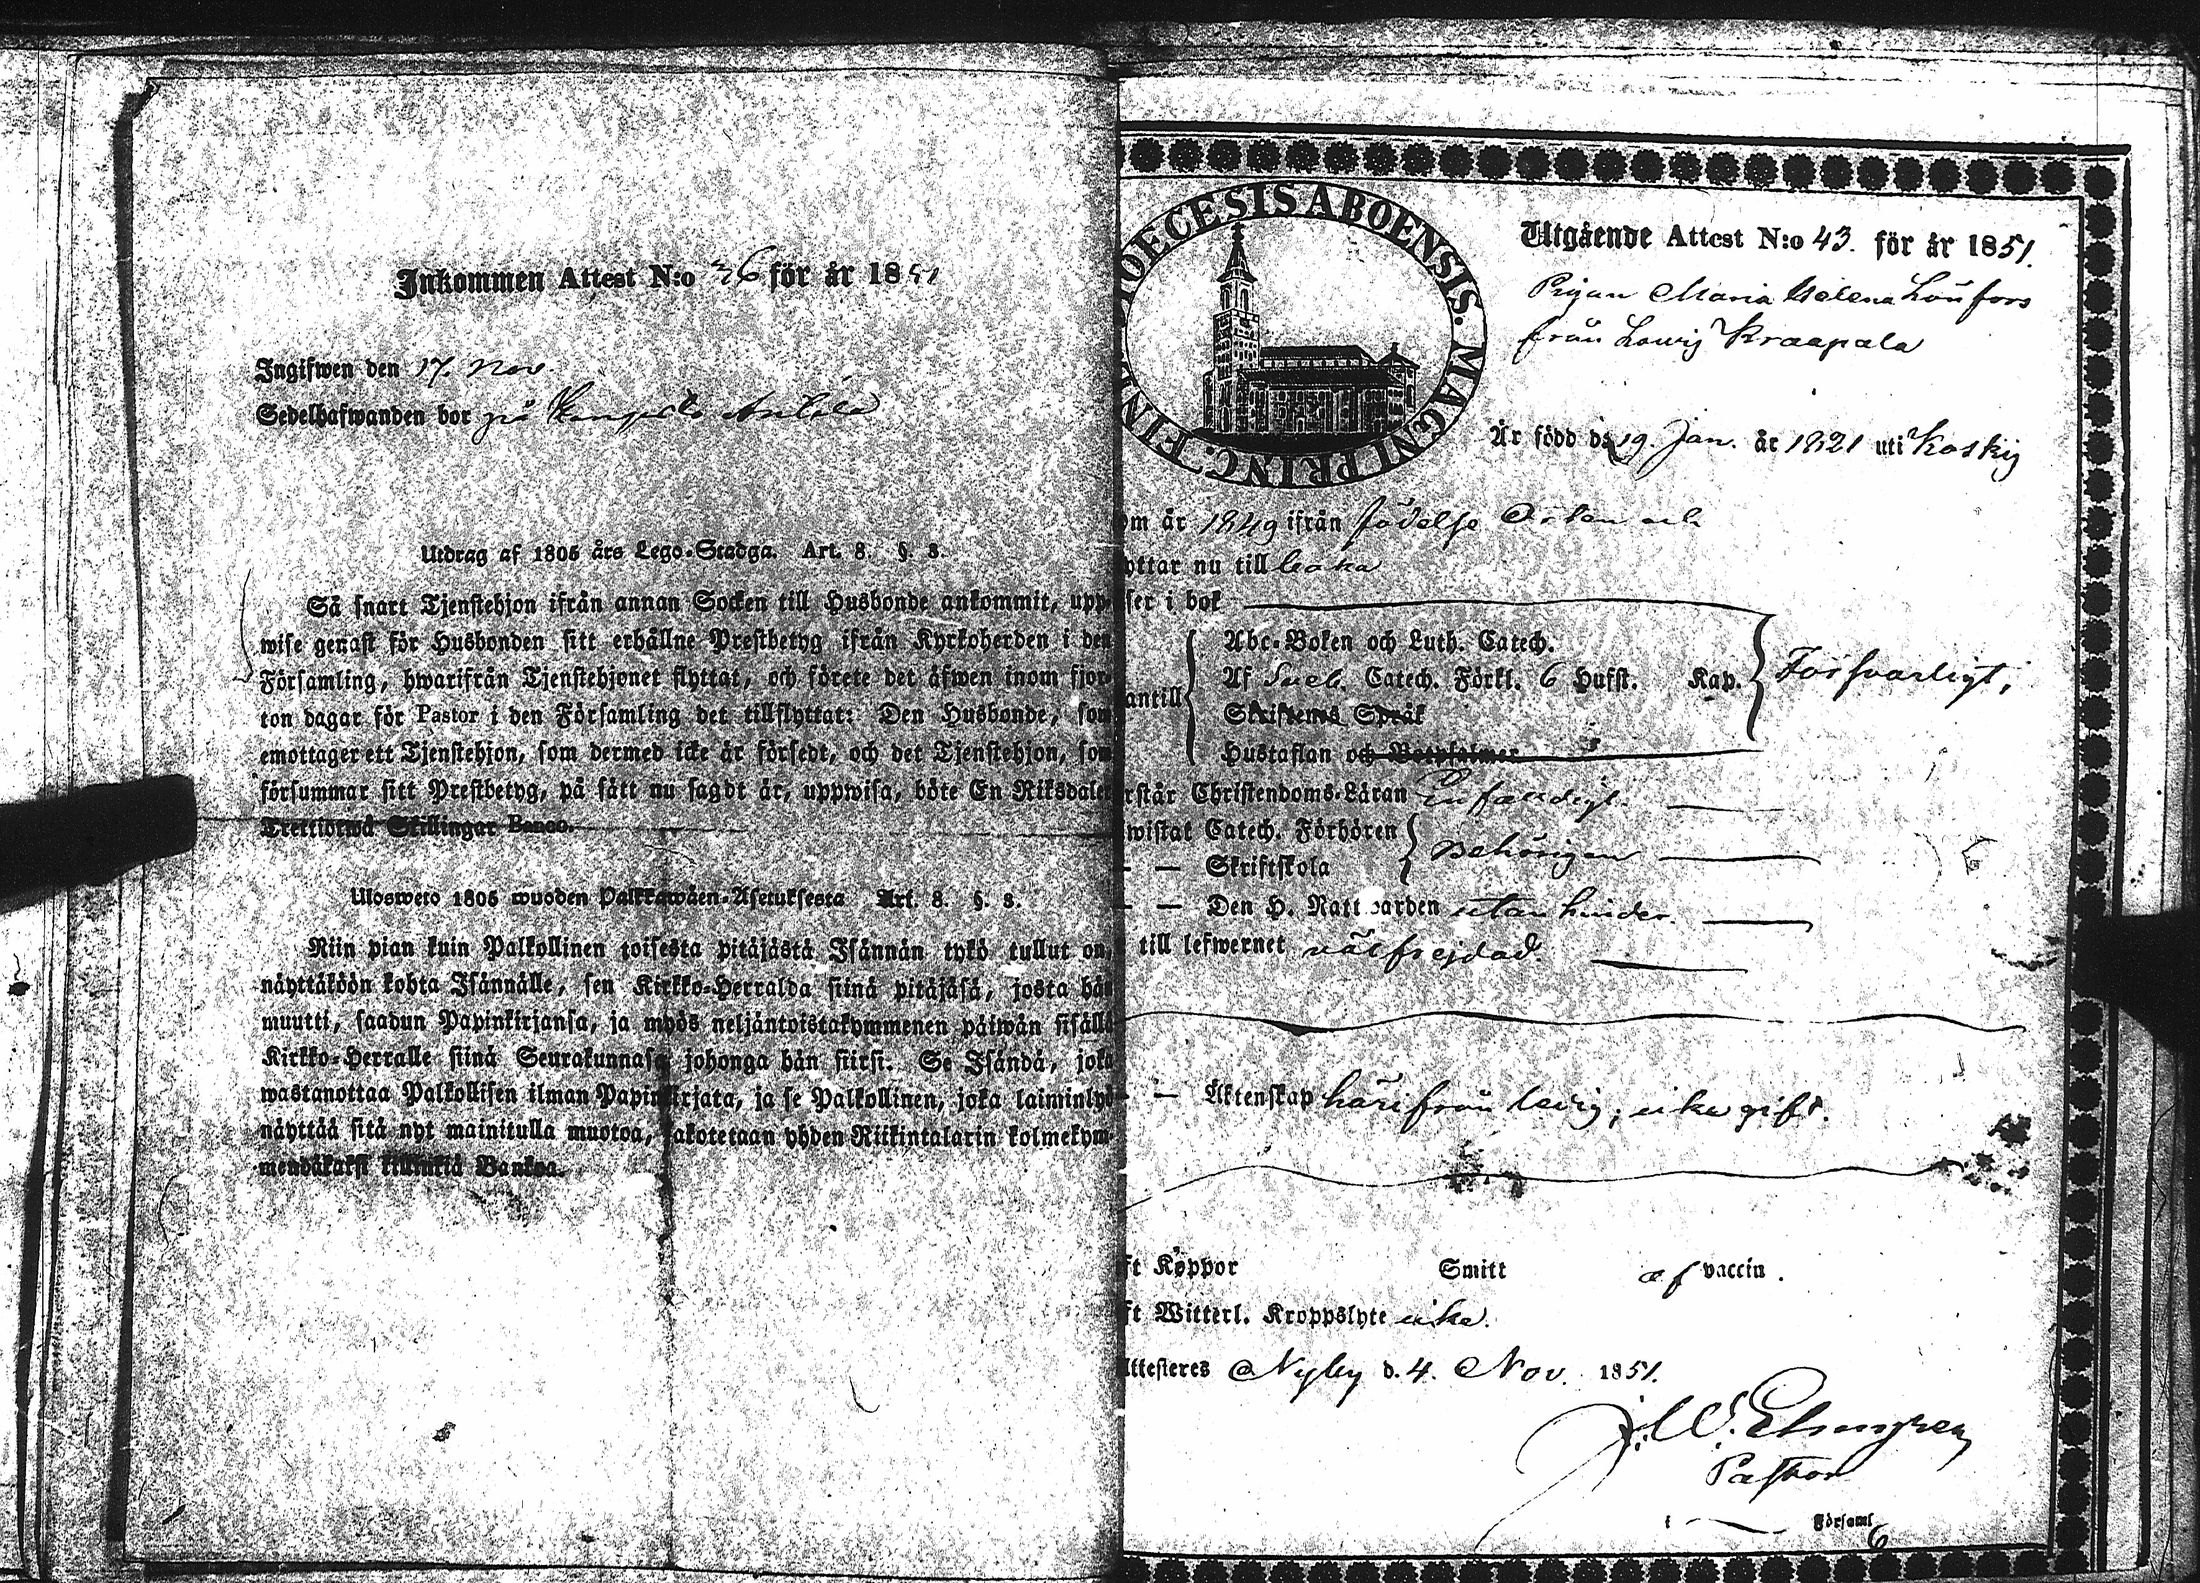 Inkommen Attest N:o 36 för år 1851
Ingifwen den 17. Nov.
Sedelhafwanden bor på
Utdrag af 1805 års Lego-Stadga. Art. 8. §. 3.
Så snart Tjenstehjon ifrån annan Socken till Husbonde ankommit, upp-
wise genast för Husbonden sitt erhållne Prestbetyg ifrån Kyrkoherden i den
Församling, hwarifrån Tjenstehjonet flyttat, och förete det äfwen inom fjor-
ton dagar för Pastor i den Församling det tillflyttat: Den Husbonde, som
emottager ett Tjenstehjon, som dermed icke är försedt, och det Tjenstehjon, som
försummar sitt Prestbetyg, på sätt nu sagdt är, uppwisa, böte En Riksdaler
Trettiotwå Skillingar Banco.
Ulosweto 1805 wuoden Palkkawäen-Asetuksesta Art. 8. §. 3.
Niin pian kuin Palkollinen toisesta pitäjästä Isännän tykö tullut on,
näyttäköön kohta Isännälle, sen Kirkko-Herralda siinä pitäjäsä, josta hän
muutti, saadun Papinkirjansa, ja myös neljäntoistakymmenen päiwän sisällä
Kirkko-Herralle siinä Seurakunnasa johonga hän siirsi. Se Isändä, joka
wastanottaa Palkollisen ilman Papinkirjata, ja se Palkollinen, joka laiminlyö
näyttää sitä nyt mainitulla muotoa, sakotetaan yhden Riikintalarin kolmekym-
mendäkaksi killinkiä Bankoa.
DIOECESIS ABOENSIS. MAGNI PRINC. FINL.
Utgående Attest N:o 43. för år 1851.
Pigan Maria Helena Löufors
från Louvig Kraapala
Är född d. 19. Jan. år 1821 uti Koskig
om år 1849 ifrån födelse Orten och
yttar nu tillbaka
ser i bok
Abc-Boken och Luth. Catech.
Af Sueb. Catech. Förkl. 6 Hufst. Kap. Försvarligt,
antill
Skriftens Språk
Hustaflan och Botpsalmer
rstår Christendoms-Läran Enfaldigt.
wistat Catech. Förhören Behörigen
— — Skriftskola
— — Den H. Nattwarden utan hinder.
till lefwernet välfrejdad.
— — Äktenskap härifrån ledig; icke gift.
ft Koppor Smitt af vaccin.
ft Witterl. Kroppslyte icke.
Attesteres Nyby d. 4. Nov. 1851.
J. W. Elmgren
Pastor
i Församl
6